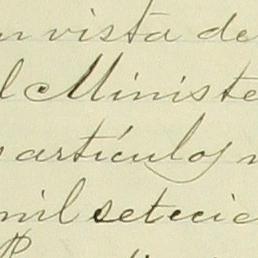 n vista de
l Ministe
artículos n
mil setecie